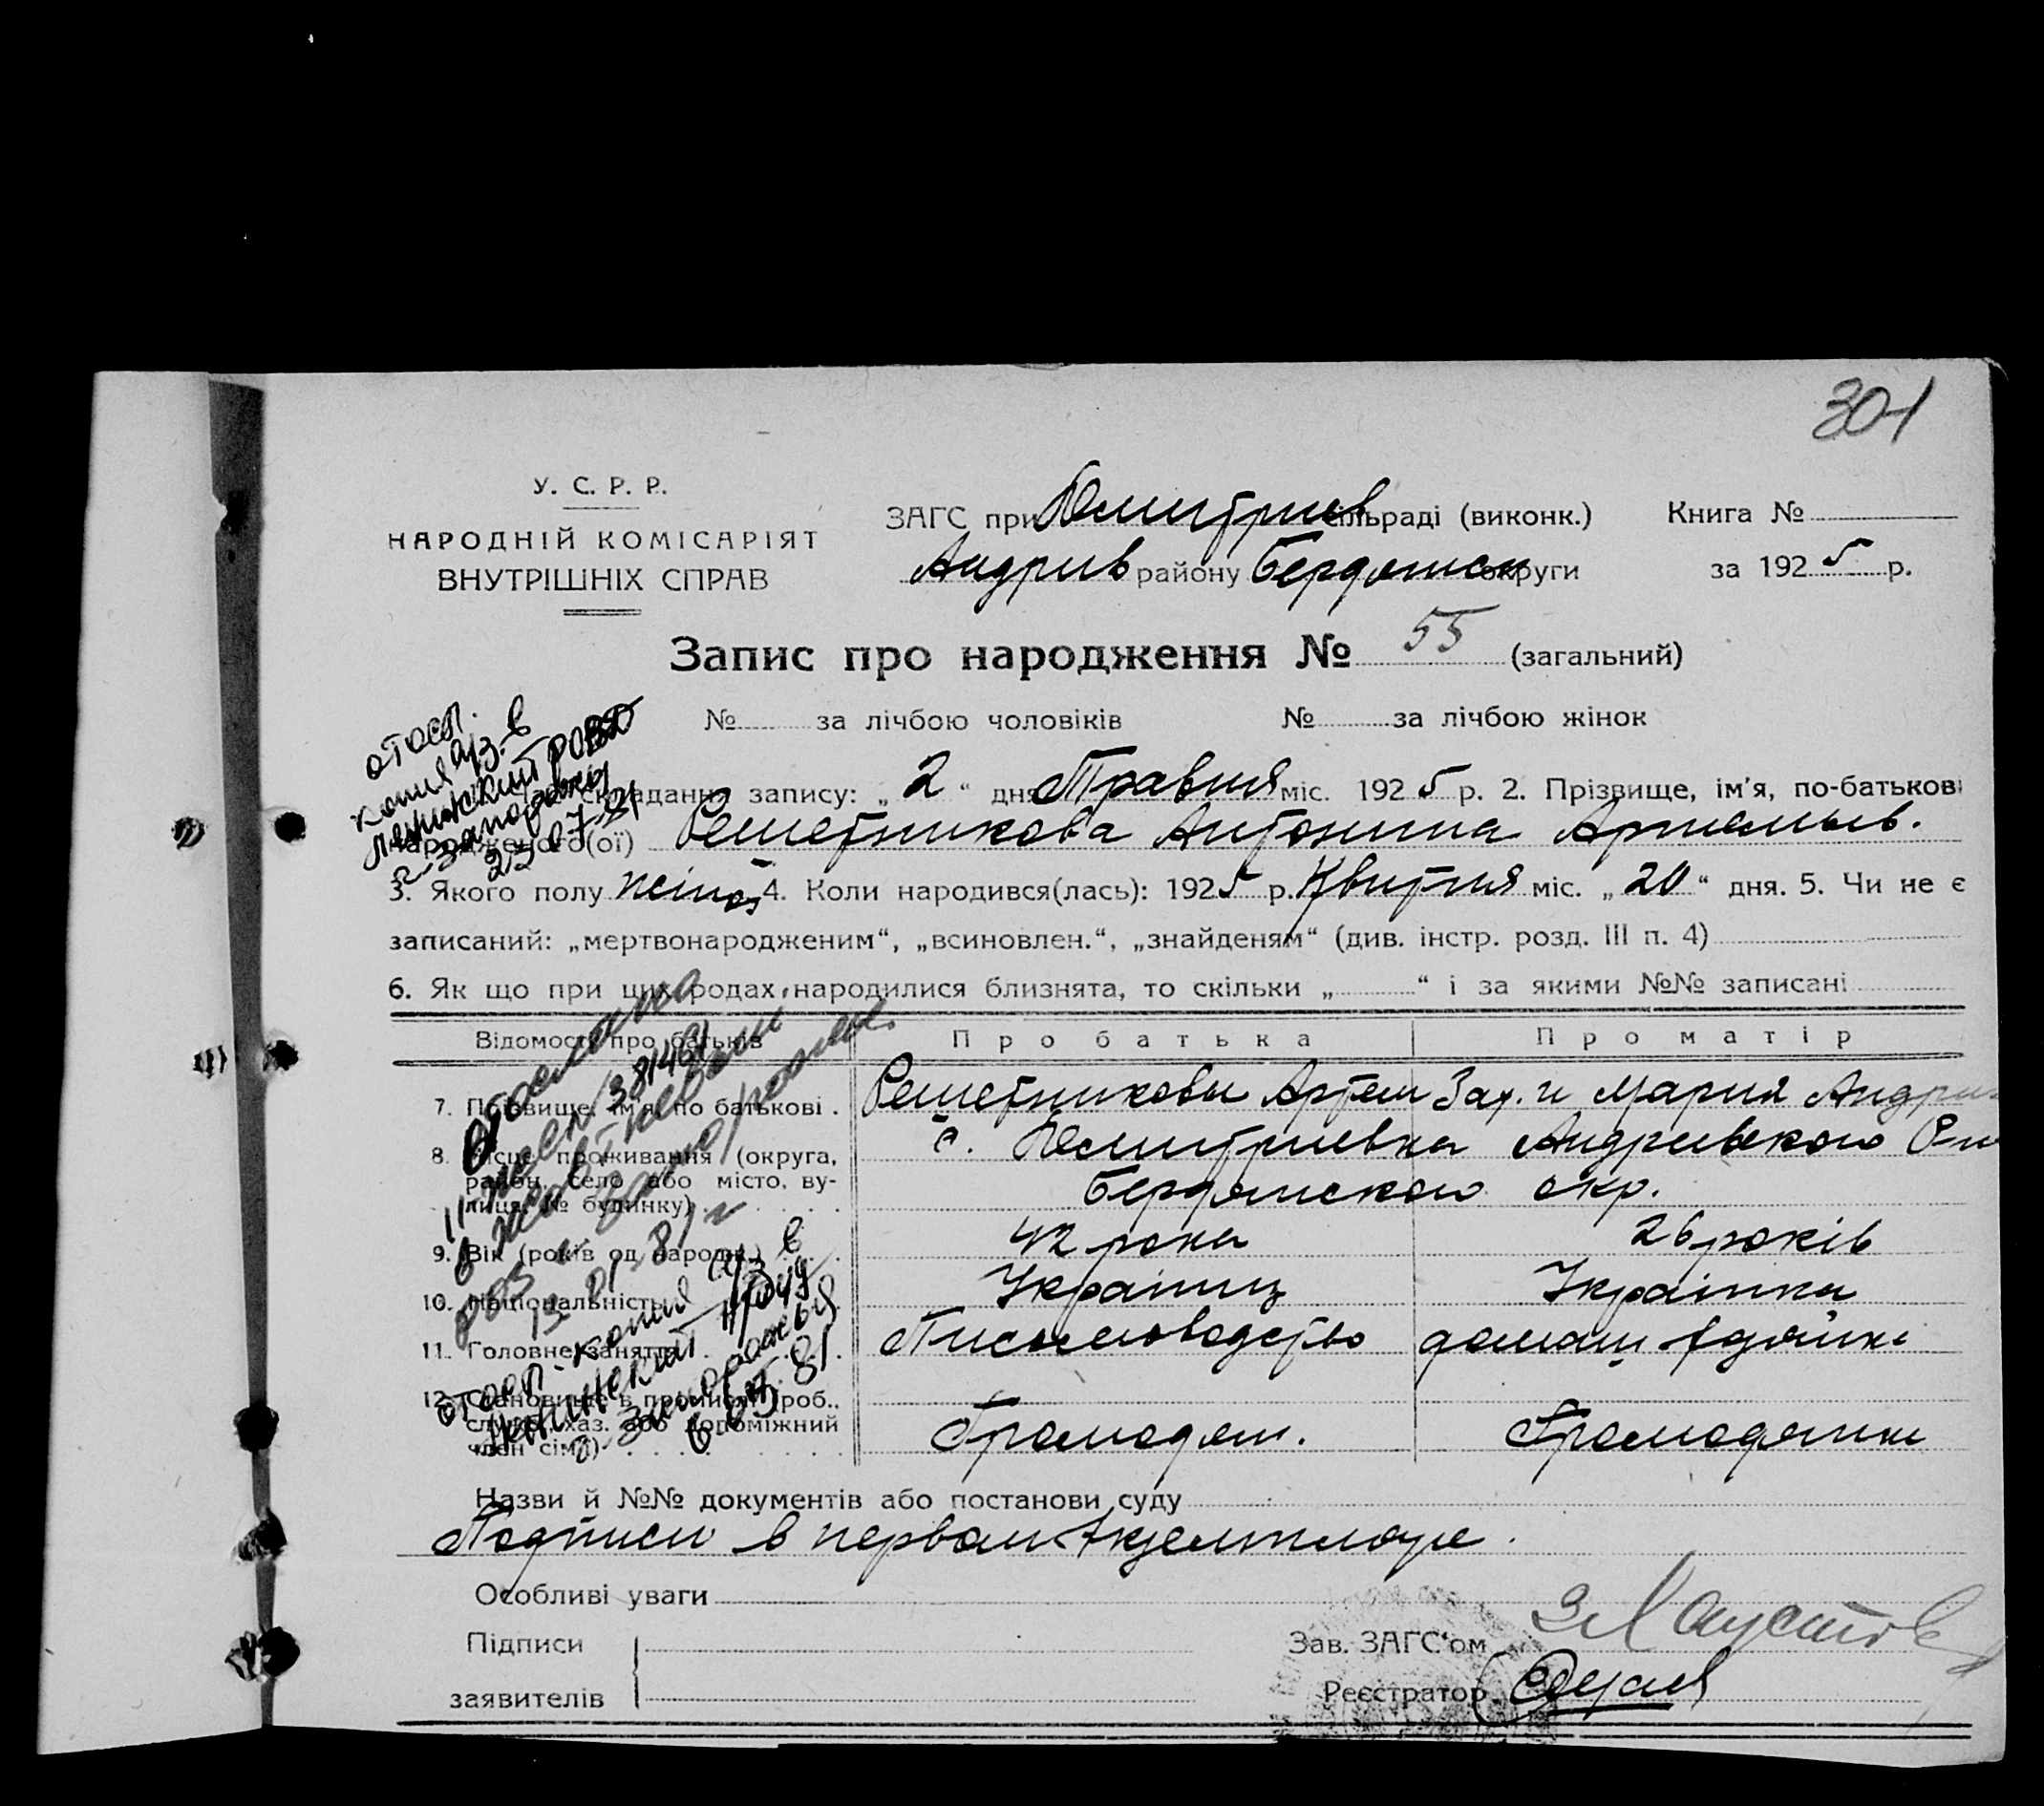 301
У. С. Р. Р.
НАРОДНІЙ КОМІСАРІЯТ
ВНУТРІШНІХ СПРАВ
ЗАГС при Дмитрив сільраді (виконк.) Книга №
Андрив району Бердянськ округи за 1925 р.
Запис про народження № 55 (загальний)
№ за лічбою чоловіків № за лічбою жінок
складання запису: „2“ дня Травня міс. 1925 р. 2. Прізвище, ім’я, по-батькові
народженого(ої) Решетникова Антонина Артемьев.
3. Якого полу жіноч 4. Коли народився(лась): 1925 р. Квитня міс. „20“ дня. 5. Чи не є
записаний: „мертвонародженим“, „всиновлен.“, „знайденям“ (див. інстр. розд. III п. 4)
6. Як що при цих родах народилися близнята, то скільки „ “ і за якими №№ записані
Відомості про батьків Про батька Про матір
7. Прізвище, ім’я, по батькові . Решетниковы Артем Зах. и Мария Андри
8. Місце проживання (округа, с. Дмитриевка Андриевского Р-на
район, село або місто, ву-
лиця, № будинку) Бердянского окр.
9. Вік (років од народж.) 42 рока 26 років
10. Національність Українц Українка
11. Головне заняття Письмоводство домаш
12. Становище в промислі (роб.,
службов., хаз. або допоміжний Громадян. Громадянки
член сім’ї)
Назви й №№ документів або постанови суду
Подписи в первом экземпляре.
Особливі уваги
Підписи Зав. ЗАГС‘ом
заявителів Реєстратор
отосл.
копия а/з в
Ленинский РОВД
г. Запорожья
23.07.81
Отослана
381461
13-01-81 г
отосл. копия а/з в
Ленинский
г. Запорожья
6.05.81.